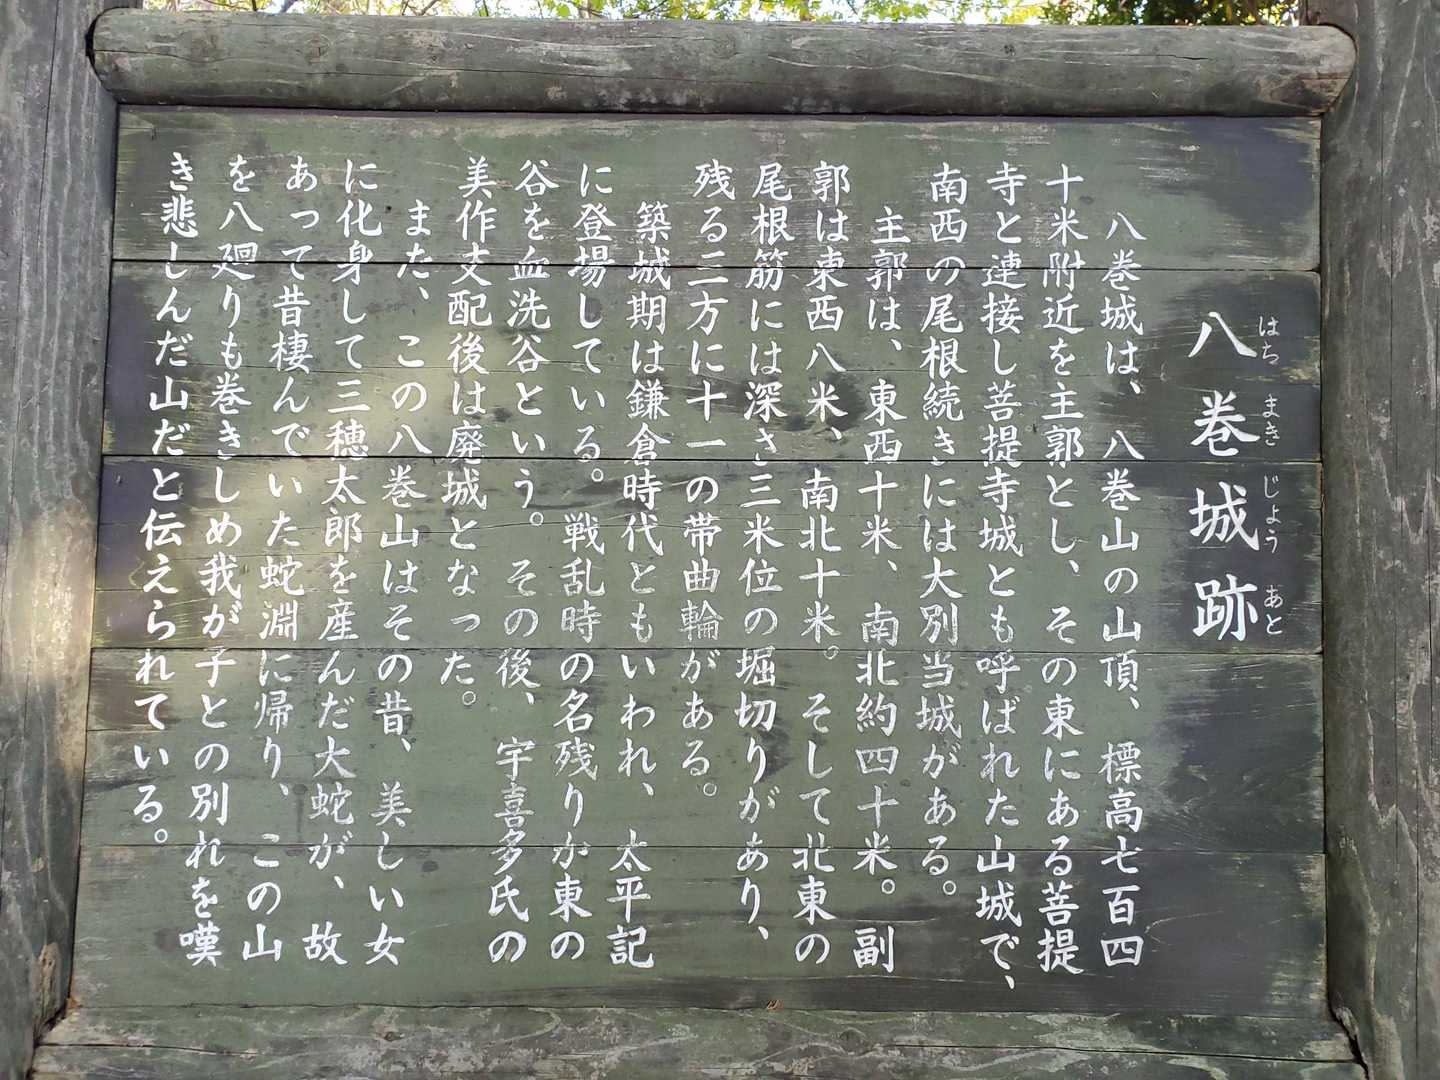 八巻城跡
はちまきじょうあと
八巻城は、八巻山の山頂、標高七百四
十米附近を主郭とし、その東にある菩提
寺と連接し菩提寺城とも呼ばれた山城で、
南西の尾根続きには大別当城がある。
主郭は、東西十米、南北約四十米。副
郭は東西八米、南北十米。そして北東の
尾根筋には深さ三米位の堀切りがあり、
残る三方に十一の帯曲輪がある。
築城期は鎌倉時代ともいわれ、太平記
に登場している。戦乱時の名残りか東の
谷を血洗谷という。その後、宇喜多氏の
美作支配後は廃城となった。
また、この八巻山はその昔、美しい女
に化身して三穂太郎を産んだ大蛇が、故
あって昔棲んでいた蛇淵に帰り、この山
を八廻りも巻きしめ我が子との別れを嘆
き悲しんだ山だと伝えられている。